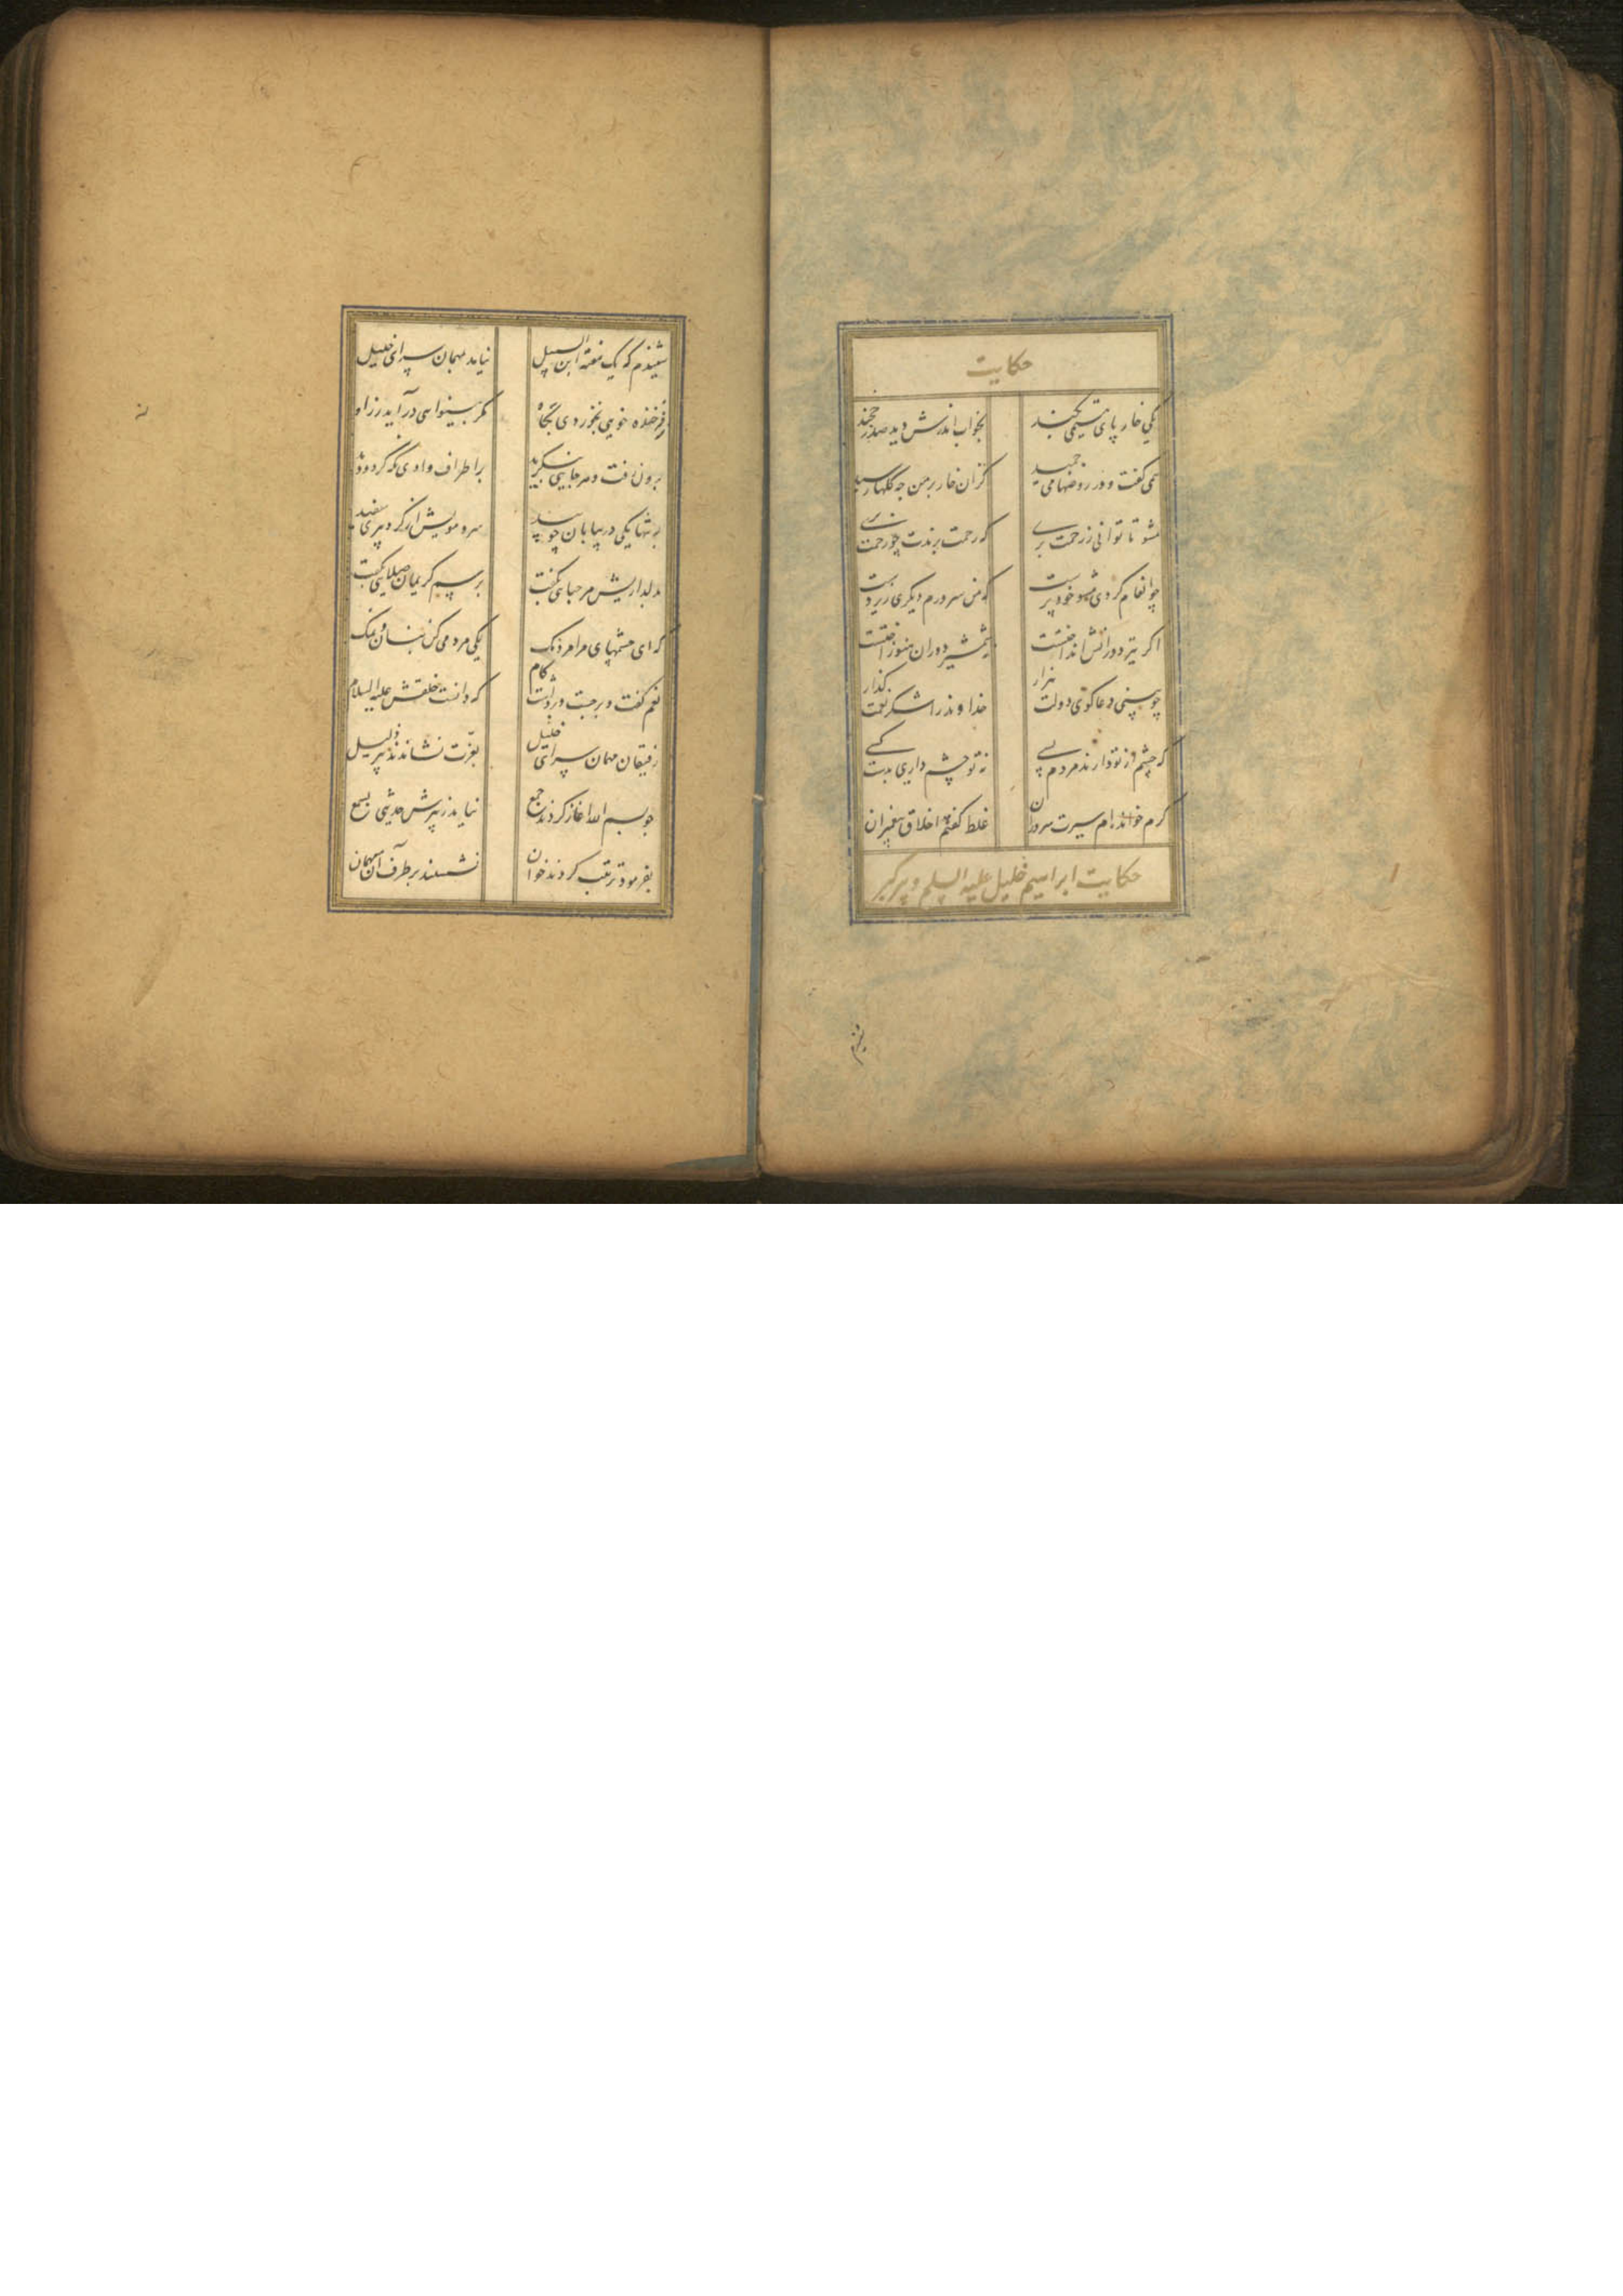 حکایت
یکی خار پای یتیمی بکند بخواب اندرش دید صدر خجند
همی گفت و در روضها می چمید کزان خار بر من چه گلها رسید
مشو تا توانی ز رحمت بری که رحمت برندت چو رحمت بری
چو انعام کردی مشو خود پرست که من سرورم دیگری زیر دست
اگر تیغ دورانش انداختست شمشیر دوران هنوز آختست
چو بینی دعاگوی دولت هزار خداوند را شکر نعمت گذار
که چشم از تو دارند مردم بسی نه تو چشم داری بدست کسی
کرم خوانده‌ام سیرت سروران غلط گفتم اخلاق پیغمبران
حکایت ابراهیم خلیل علیه السلم و پیر گبر
شنیدم که یک هفته ابن السبیل نیامد بمهمان سرای خلیل
ز فرخنده خویی نخوردی بگاه مگر بینوایی درآید ز راه
برون رفت و هر جانبی بنگرید بر اطراف وادی نگه کرد و دید
بتنها یکی در بیابان چو بید سر و مویش از گرد پیری سفید
بدلداریش مرحبایی بگفت برسم کریمان صلایی بگفت
که ای چشمهای مرا مردمک یکی مردمی کن بنان و نمک
نعم گفت و برجست و برداشت گام که دانست خلقش علیه السلام
رفیقان مهمان سرای خلیل بعزت نشاندند پیر ذلیل
بفرمود ترتیب کردند خوان نشستند بر طرف آن همگنان
چو بسم الله آغاز کردند جمع نیامد ز پیرش حدیثی بسمع